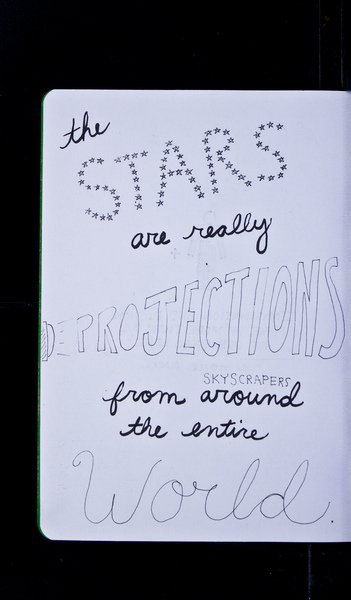 the
STARS
are really
PROJECTIONS
SKYSCRAPERS
from around
the entire
World.